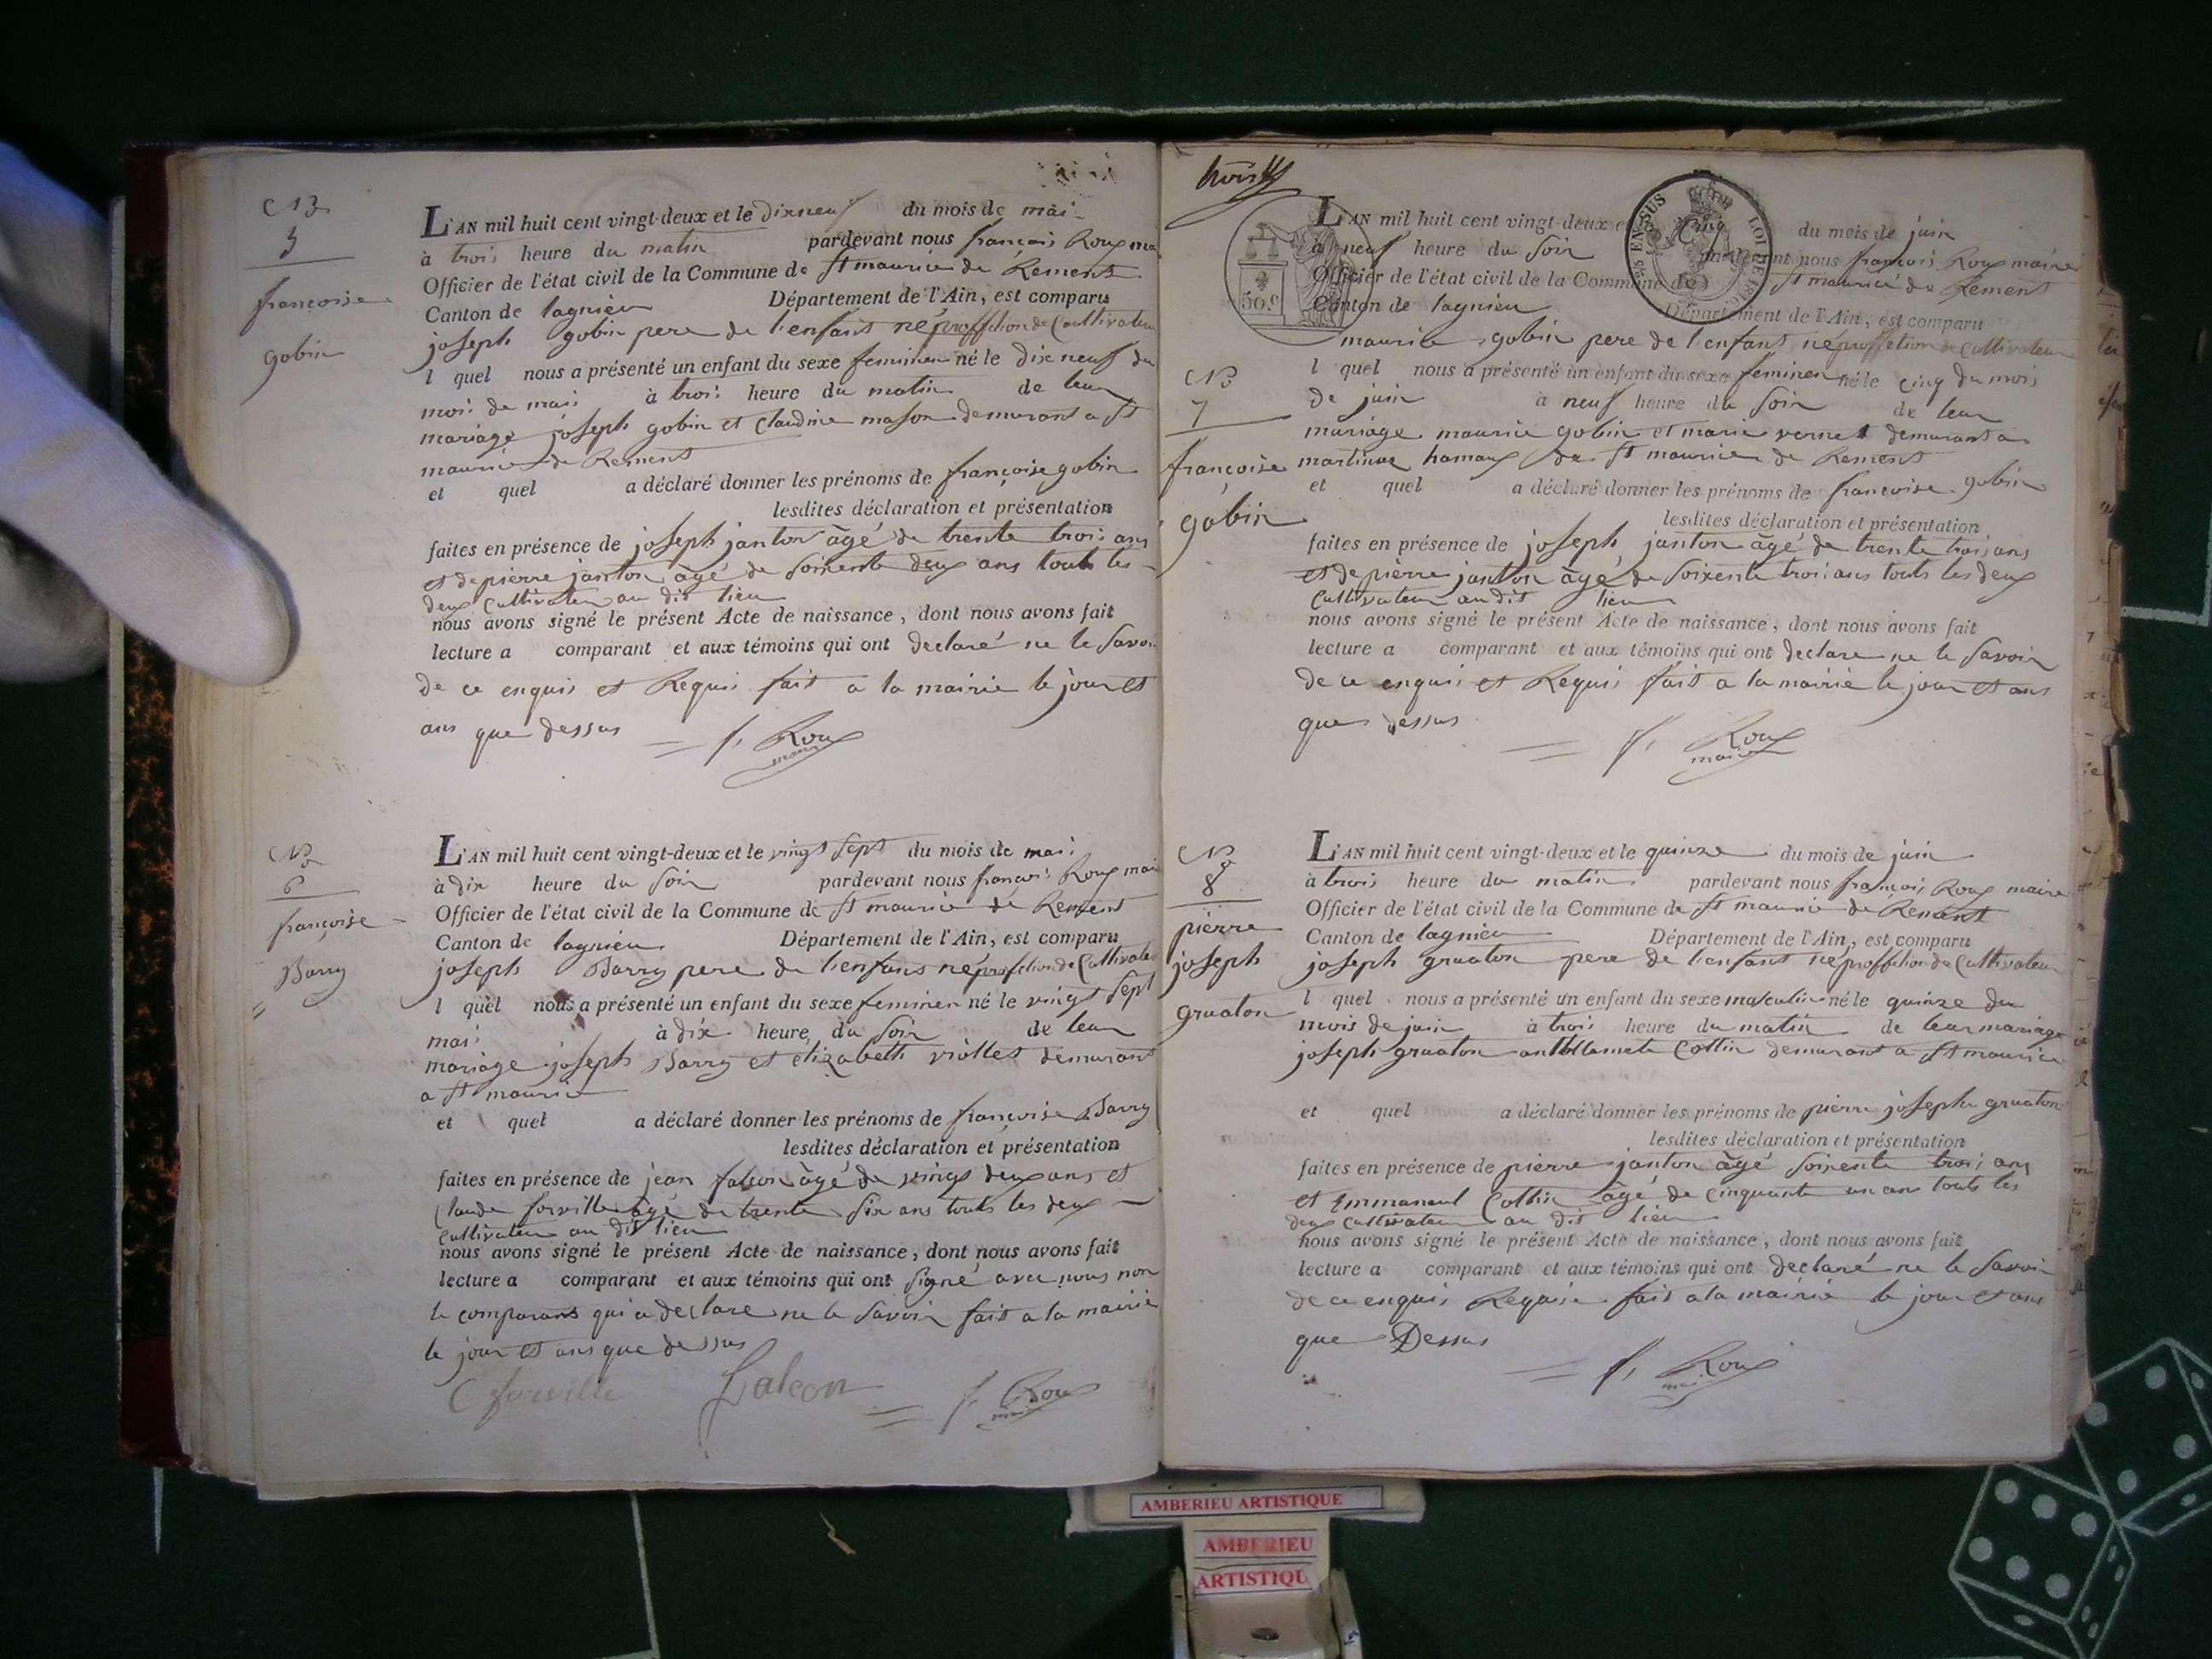 N°
5
françoise
gobin
L'AN mil huit cent vingt-deux et le dixneuf du mois de mai
à trois heure du matin pardevant nous françois Roux
Officier de l'état civil de la Commune de St maurice de Remens
Canton de lagnieu Département de l'Ain, est comparu
joseph gobin pere de l'enfant né proffession de Cultivateur
l quel nous a présenté un enfant du sexe feminen né le dix neuf du
mois de mai à trois heure du matin de leur
mariage joseph gobin et claudine mason demurant a St
maurice de Remens
et quel a déclaré donner les prénoms de françoise gobin
lesdites déclaration et présentation
faites en présence de joseph janton àgé de trente trois ans
et de pierre janton àgé de soixente deux ans touts les
deux Cultivateur au dit lieu
nous avons signé le présent Acte de naissance, dont nous avons fait
lecture a comparant et aux témoins qui ont declaré ne le savoir
de ce enquis et Requis fait a la mairie le jour et
ans que dessus f. Roux
maire
N°
6
françoise
Barry
L'AN mil huit cent vingt-deux et le vingt sept du mois de mai
à dix heure du soir pardevant nous françois Roux maire
Officier de l'état civil de la Commune de St maurice de Remens
Canton de lagnieu Département de l'Ain, est comparu
joseph Barry pere de l'enfant né profession de Cultivateur
l quel nous a présenté un enfant du sexe feminen né le vingt sept
mai à dix heure du soir de leur
mariage joseph Barry et elizabeth viollet demurant
a St maurice
et quel a déclaré donner les prénoms de françoise Barry
lesdites déclaration et présentation
faites en présence de jean falcon àgé de vingt deux ans et
Claude forville àgé de trente six ans touts les deux
Cultivateur au dit lieu
nous avons signé le présent Acte de naissance, dont nous avons fait
lecture a comparant et aux témoins qui ont signé avec nous non
le comparant qui a declare ne le savoir fait a la mairie
le jour et ans que dessus
C forville falcon f. Roux
maire
50 c.
EN SUS LOI DE 1816
N°
7
françoise
gobin
L'AN mil huit cent vingt-deux et Cinq du mois de juin
à neuf heure du soir pardevant nous françois Roux maire
Officier de l'état civil de la Commune de St maurice de Remens
Canton de lagnieu Département de l'Ain, est comparu
maurice gobin pere de l'enfant né proffession de Cultivateur
l quel nous a présenté un enfant du sexe feminen né le cinq du mois
de juin à neuf heure du soir de leur
mariage maurice gobin et marie vernet demurant a
martinaz hamaux de St maurice de Remens
et quel a déclaré donner les prénoms de françoise gobin
lesdites déclaration et présentation
faites en présence de joseph janton àgé de trente trois ans
et de pierre janton àgé de soixente trois ans touts les deux
Cultivateur au dit lieu
nous avons signé le présent Acte de naissance, dont nous avons fait
lecture a comparant et aux témoins qui ont declare ne le savoir
de ce enquis et Requis fait a la mairie le jour et ans
que dessus f. Roux
maire
N°
8
pierre
joseph
gruaton
L'AN mil huit cent vingt-deux et le quinze du mois de juin
à trois heure du matin pardevant nous françois Roux maire
Officier de l'état civil de la Commune de St maurice de Remens
Canton de lagnieu Département de l'Ain, est comparu
joseph gruaton pere de l'enfant né proffession de Cultivateur
l quel nous a présenté un enfant du sexe masculin né le quinze du
mois de juin à trois heure du matin de leur mariage
joseph gruaton Cottin demurant a St maurice
et quel a déclaré donner les prénoms de pierre joseph gruaton
lesdites déclaration et présentation
faites en présence de pierre janton àgé soixente trois ans
et Emmanuel Cottin àgé de cinquante un ans touts les
deux cultivateur au dit lieu
nous avons signé le présent Acte de naissance, dont nous avons fait
lecture a comparant et aux témoins qui ont declaré ne le savoir
de ce enquis Requis fait a la mairie le jour et ans
que Dessus
f. Roux
maire
AMBERIEU ARTISTIQUE
AMBERIEU
ARTISTIQU